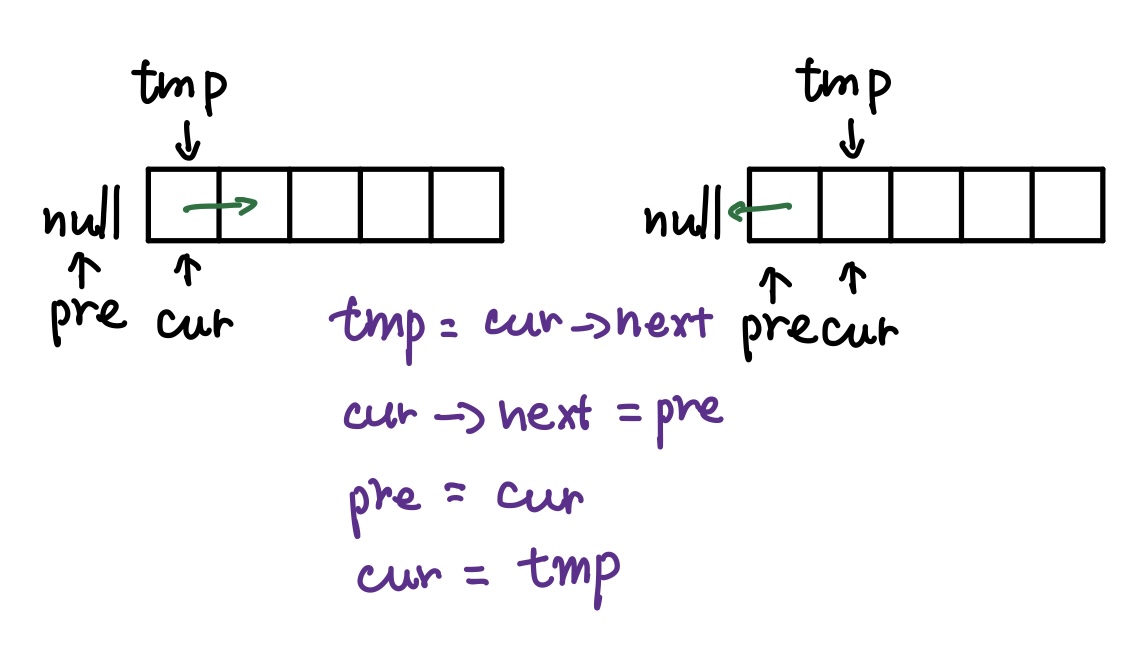 tmp
null
pre
cur
tmp
null
pre
cur
tmp = cur → next
cur → next = pre
pre = cur
cur = tmp